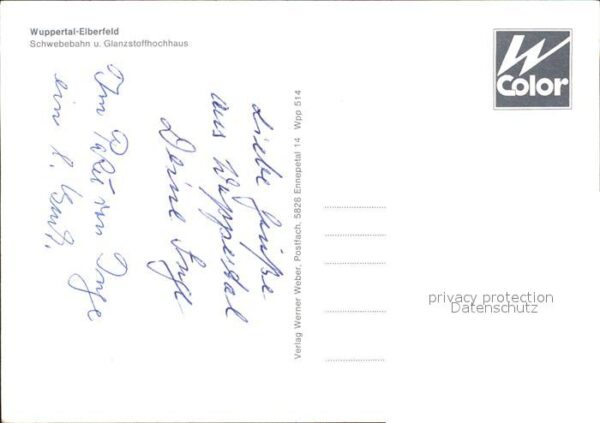 Wuppertal-Elberfeld
Schwebebahn u. Glanzstoffhochhaus
W
Color
Liebe Grüße
aus Wuppertal
Deine Inge
Im von Inge
ein
Verlag Werner Weber, Postfach, 5828 Ennepetal 14 Wpp 514
privacy protection
Datenschutz